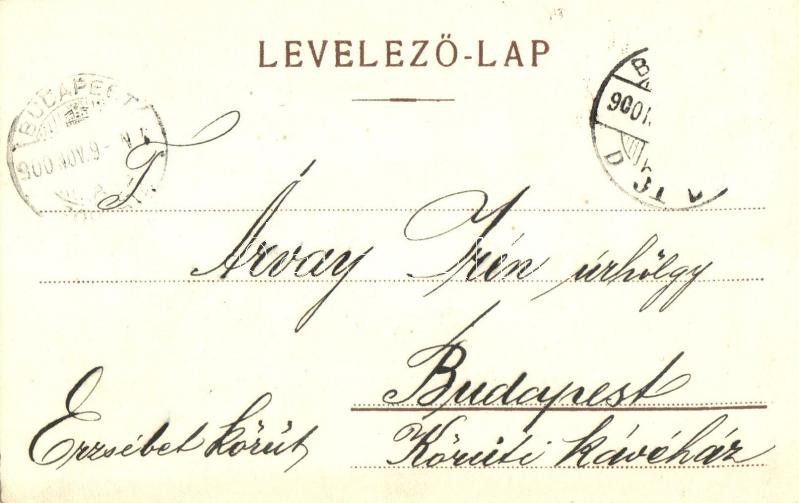 LEVELEZŐ-LAP
BUDAPEST
900 NOV. 9
9001
T.
Árvay Irén úrhölgy
Budapest
Erzsébet körút Körúti kávéház